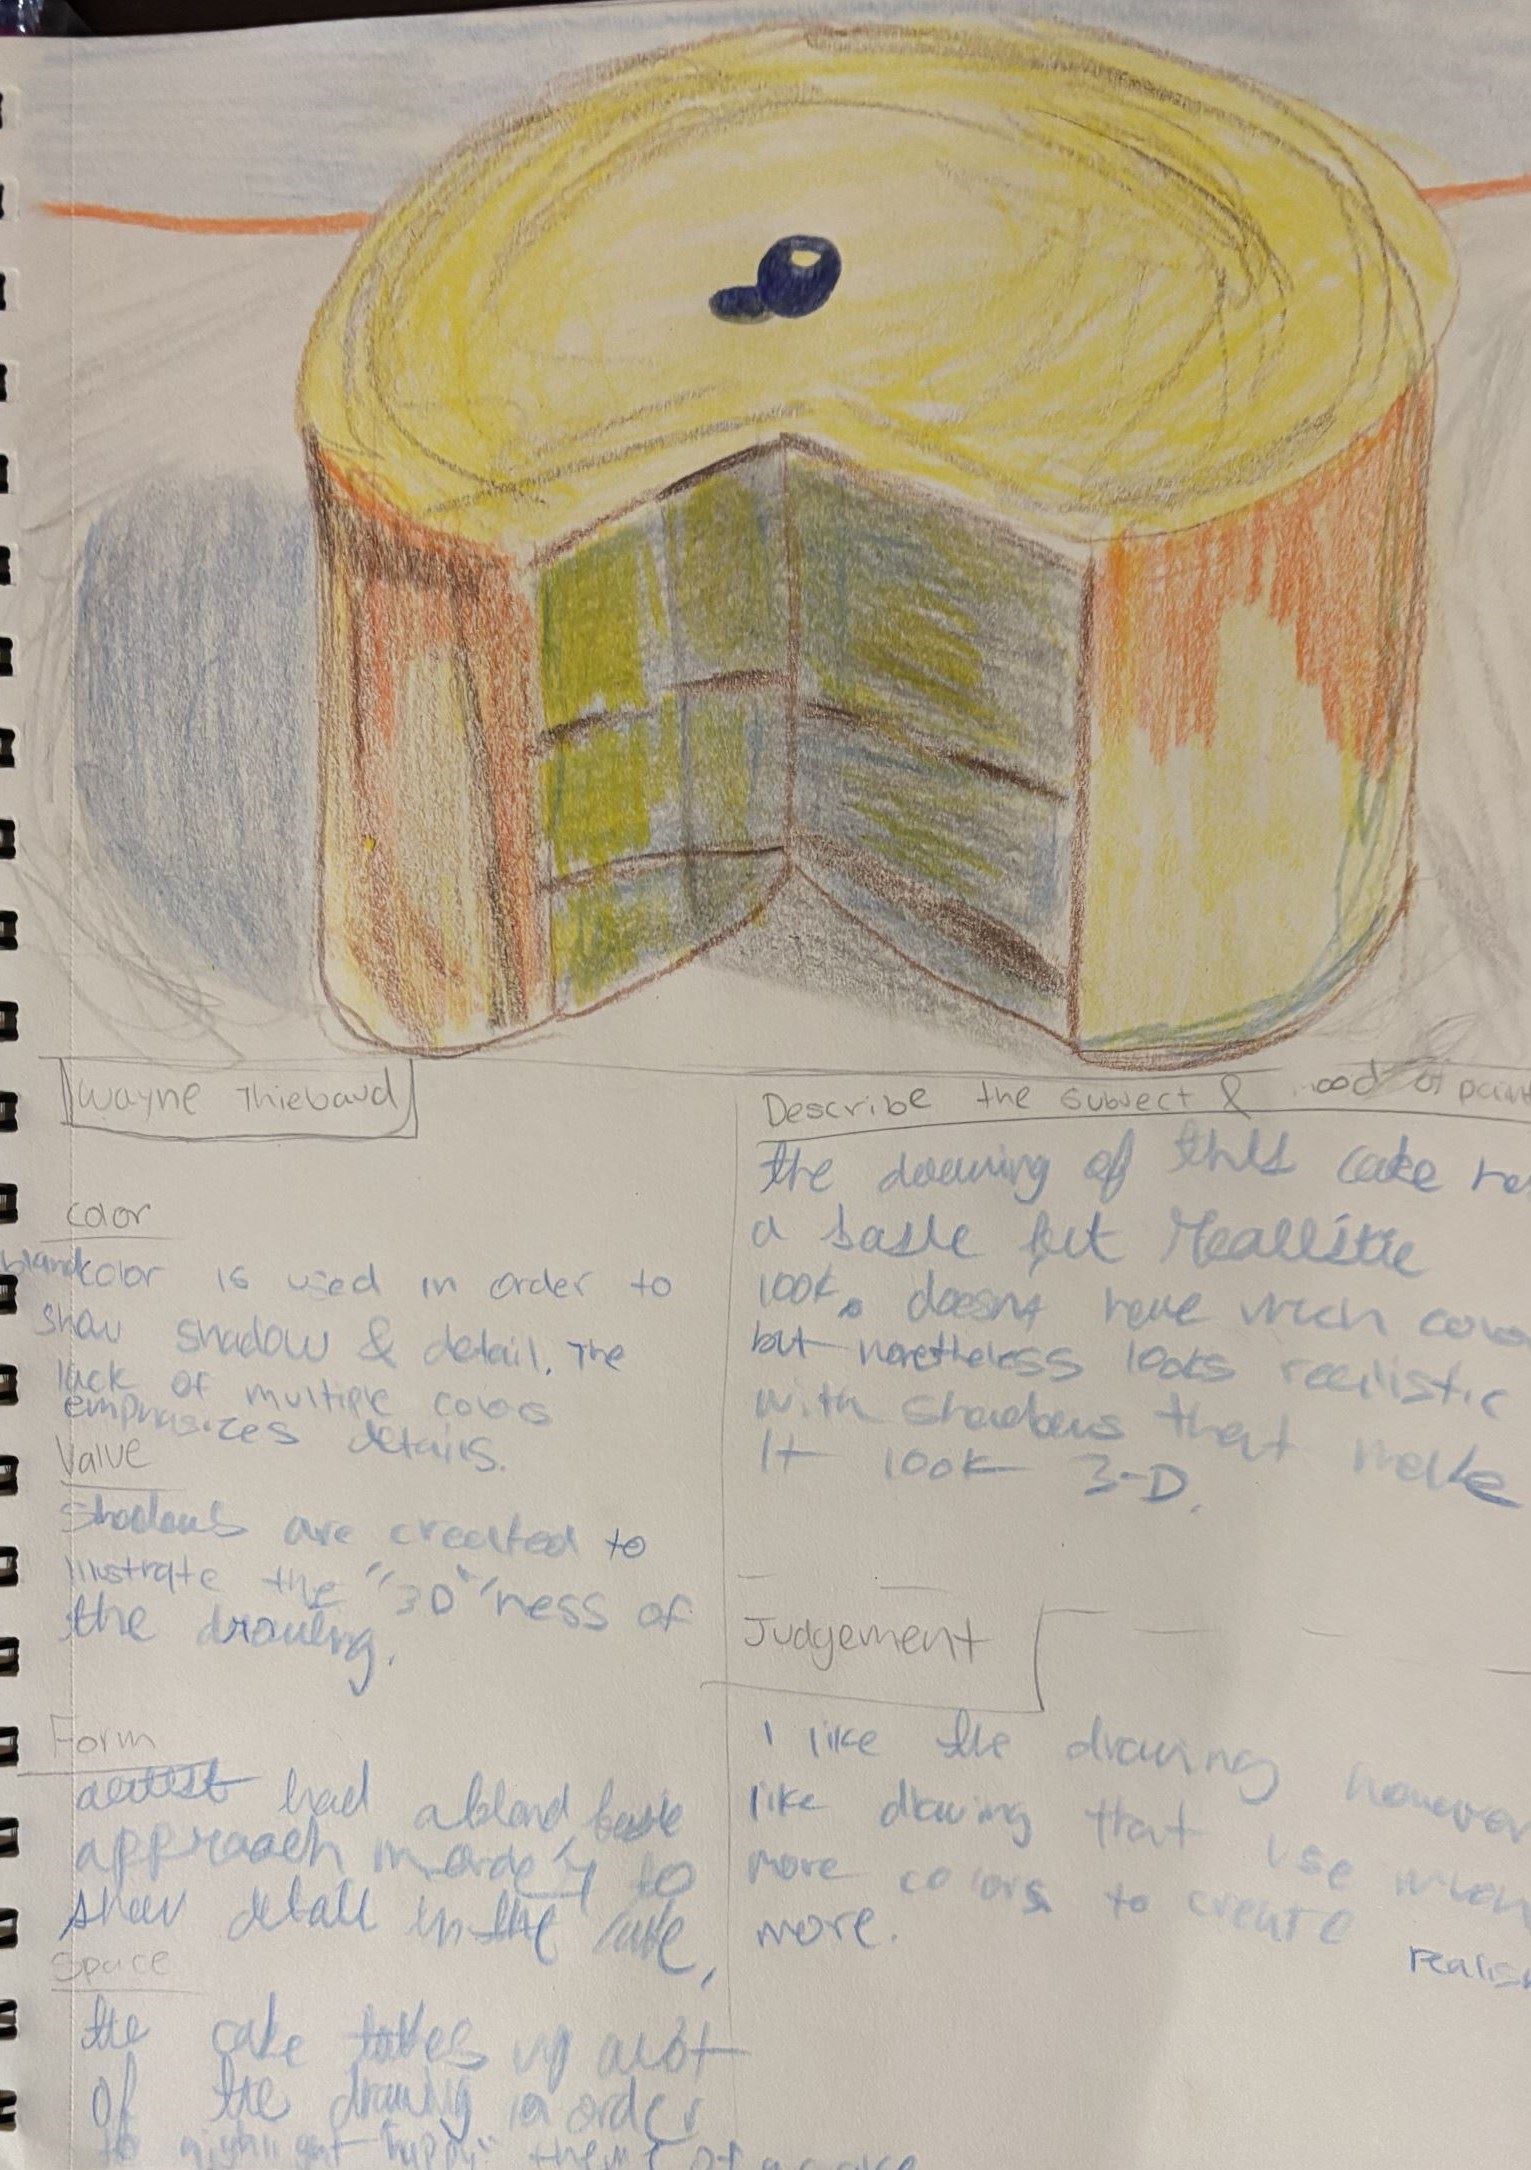 Wayne Thiebaud
color
bland color is used in order to
show shadow & detail. The
lack of multiple colors
emphasizes details.
Value
Shadows are created to
illustrate the "3D" ness of
the drawing.
Form
artist had a bland basic
approach in order to
show detail in the cake,
Space
the cake takes up a lot
of the drawing in order
to highlight "happy" theme of a
Describe the subject & mood of paint
the drawing of this cake has
a basic but reallistic
look. doesnt have much color
but nonetheless looks realistic
with shadows that make
it look 3-D.
Judgement
I like the drawing however
like drawing that use
more colors to create
more.
realis